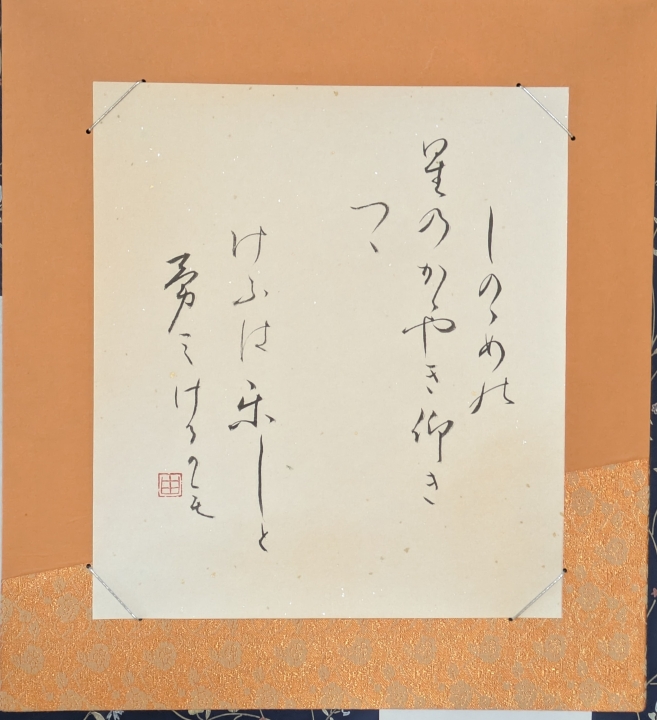 しのゝめの
星乃かゝやき仰き
つゝ
けふは楽しと
勇みけるかも